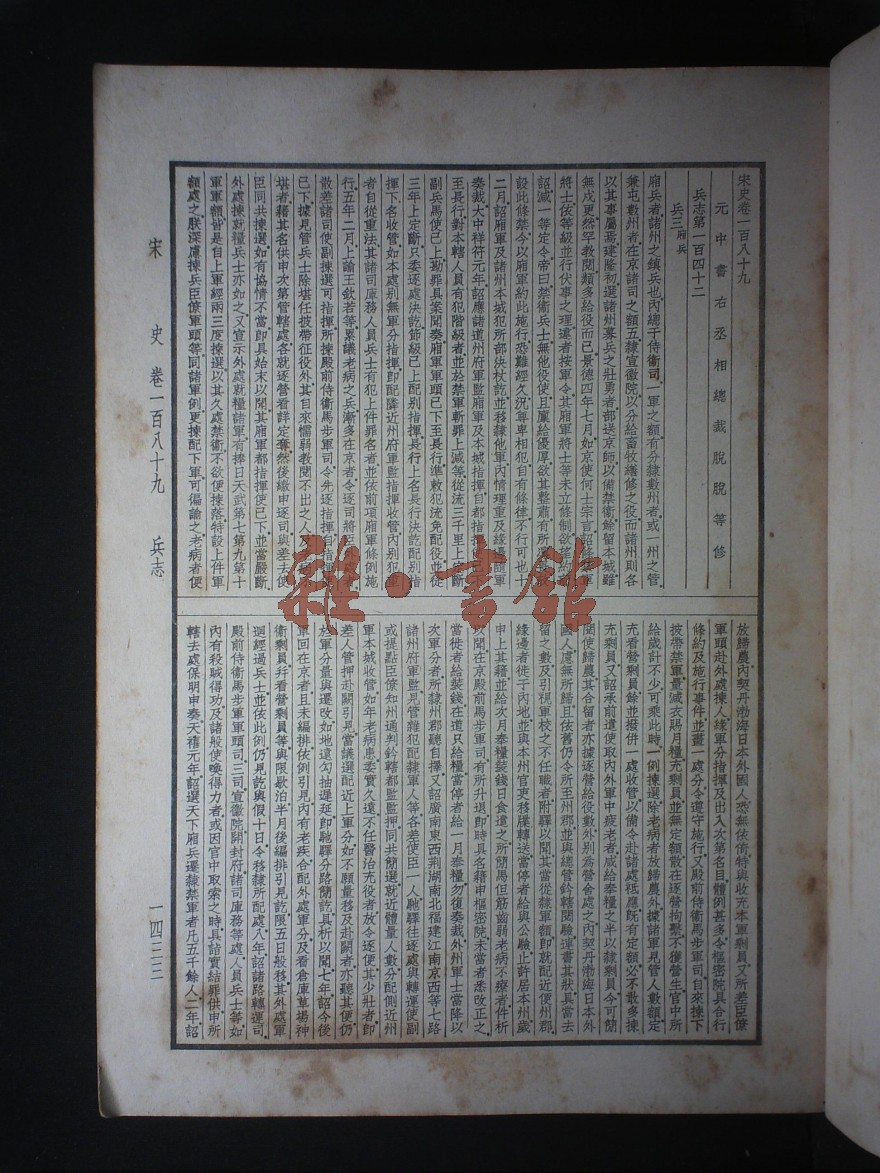 宋史卷一百八十九
元中書右丞相總裁脫脫等修
兵志第一百四十二
兵三廂兵
廂兵者諸州之鎮兵也內總于侍衞司一軍之額有分隸數州者或一州之管
兼屯數州者在京諸司之額五隸宣徽院以分給畜牧繕修之役而諸州則各
以其事屬焉建隆初選諸州募兵之壯勇者部送京師以備禁衞餘留本城雖
無戍更然罕教閱類多給役而已景德四年七月如京使何士宗言詔條禁軍
將士依等級並行伏事之理違者按軍令其廂軍將士等未立條制欲望約
詔減一等定令帝曰禁衞兵士無他役使且廩給優厚欲其整肅有所
設此條禁今以廂軍約此施行恐難經久況尊卑相犯自有條律不行可也十
二月詔廂軍及諸州本城犯所部決杖訖並移隸他軍內情理重及緣邊軍
奏裁大中祥符元年詔應諸道州府軍監廂軍及本城指揮自都指揮使已下
至長行對本轄人員有犯階級者並於禁軍斬罪上減等從流三千里上定斷
副兵馬使已上勘罪具案聞奏廂軍軍頭已下至長行準敕犯流免配役並徒
三年上定斷只委逐處決訖節級已上配別指揮長行上名長行決訖配別指
揮下名收管如本處別無軍分指揮即配隣近州府軍監指揮收管內別犯重
者自從重法其諸司庫務人員兵士有犯上件罪名者並依前項廂軍條例施
行五年二月上諭王欽若等累議老病之兵漸多在京者令逐司將臣
散差諸司使副揀選可指揮所揀殿前侍衞馬步軍司令先逐指揮自指揮使
已下據見管兵士除堪任披帶征役外其自來懦弱教閱不出之人及老病不
堪者籍其名供申次第管轄處各就逐營看詳定奪然後繳申逐司與差去使
臣同共揀選如有協情不當即具始末以聞其廂軍都指揮使已下並當嚴斷
外處揀就糧兵士亦如之又宣示外處就糧諸軍有捧日天武第七第九第十
軍軍額皆是自上軍經兩三度揀選以其久處禁衞不欲便揀落特設上件軍
額處之朕深慮揀兵臣僚軍頭等同諸軍例更揀配下軍可徧諭之老病者便
放歸農內契丹渤海日本外國人恐無依倚特與收充本軍剩員又所差臣僚
軍頭赴外處揀人緣軍分指揮及出入次第名目體例甚多令樞密院具合行
條約及施行事件並畫一處分令遵守施行又殿前侍衞馬步軍司自來揀下
披帶禁軍量減衣賜月糧充剩員並無定額散在逐營拘繫不獲營生官中所
給歲計不少可乘此時一例揀選除老病者放歸農外據諸軍見管人數額定
充看營剩員餘並撥併一處收管以備令赴諸處祗應既有定額必不敢多揀
充剩員又詔承前遣使取內外軍中疲老者咸給奉糧之半以隸剩員今可簡
閱使歸農其合留者亦據逐營給役數外別為營舍處之內契丹渤海日本外
國人慮無所歸且依舊仍令所至州郡並與總管鈐轄閱驗連書其狀具當去
留之數及引視軍校之不任職者附驛以聞其當從隸軍額即就配近便州郡
緣邊者徙于內地並與本州官吏移牒轉送當停者給與公驗止許居本州歲
申上其籍並給次月奉糧裝錢日食遣之所簡馬但筋齒弱老病不療者件析
以聞在京殿前馬步軍司有所升退即時具名籍申樞密院未當者悉改正之
當徙者給裝錢在道只給糧當停者給一月奉糧勿復奏裁外州軍士當降以
次軍分者所隸州郡聽自擇又詔廣南東西荆湖南北福建江南京西等七路
諸州府軍監見管雜犯配隸軍人等各差使臣一人馳驛往逐處與轉運使副
或提點臣僚知州通判鈐轄都監監押同共簡選就近體量人數分配側近州
軍本城收管如年老病患委實久遠不任醫治充役者放令逐便其少壯者即
差人管押赴闕引見當議選配近上軍分如不願量移及赴闕者亦聽其便仍
於軍分量與遷改如地遠勾抽遲延即馳驛分路簡訖具析以聞七年詔今後
軍回在京者且未編排依例引見內有老疾合配外處軍分及看倉庫草場神
衞剩員并看營剩員等與限歇泊半月後編排引見訖限五日般移其外處軍
迴經過兵士並依此例仍見訖與假十日令移隸所配處八年詔諸路轉運司
殿前侍衞馬步軍軍頭司三司宣徽院開封府諸司庫務等處人員兵士等如
內有殺賊得功及諸般使喚得力者或因官中取索之時具詣實結罪供申所
轄去處保明申奏天禧元年詔選天下廂兵遷隸禁軍者凡五千餘人二年詔
宋史卷一百八十九 兵志
一四三三
雜·書館